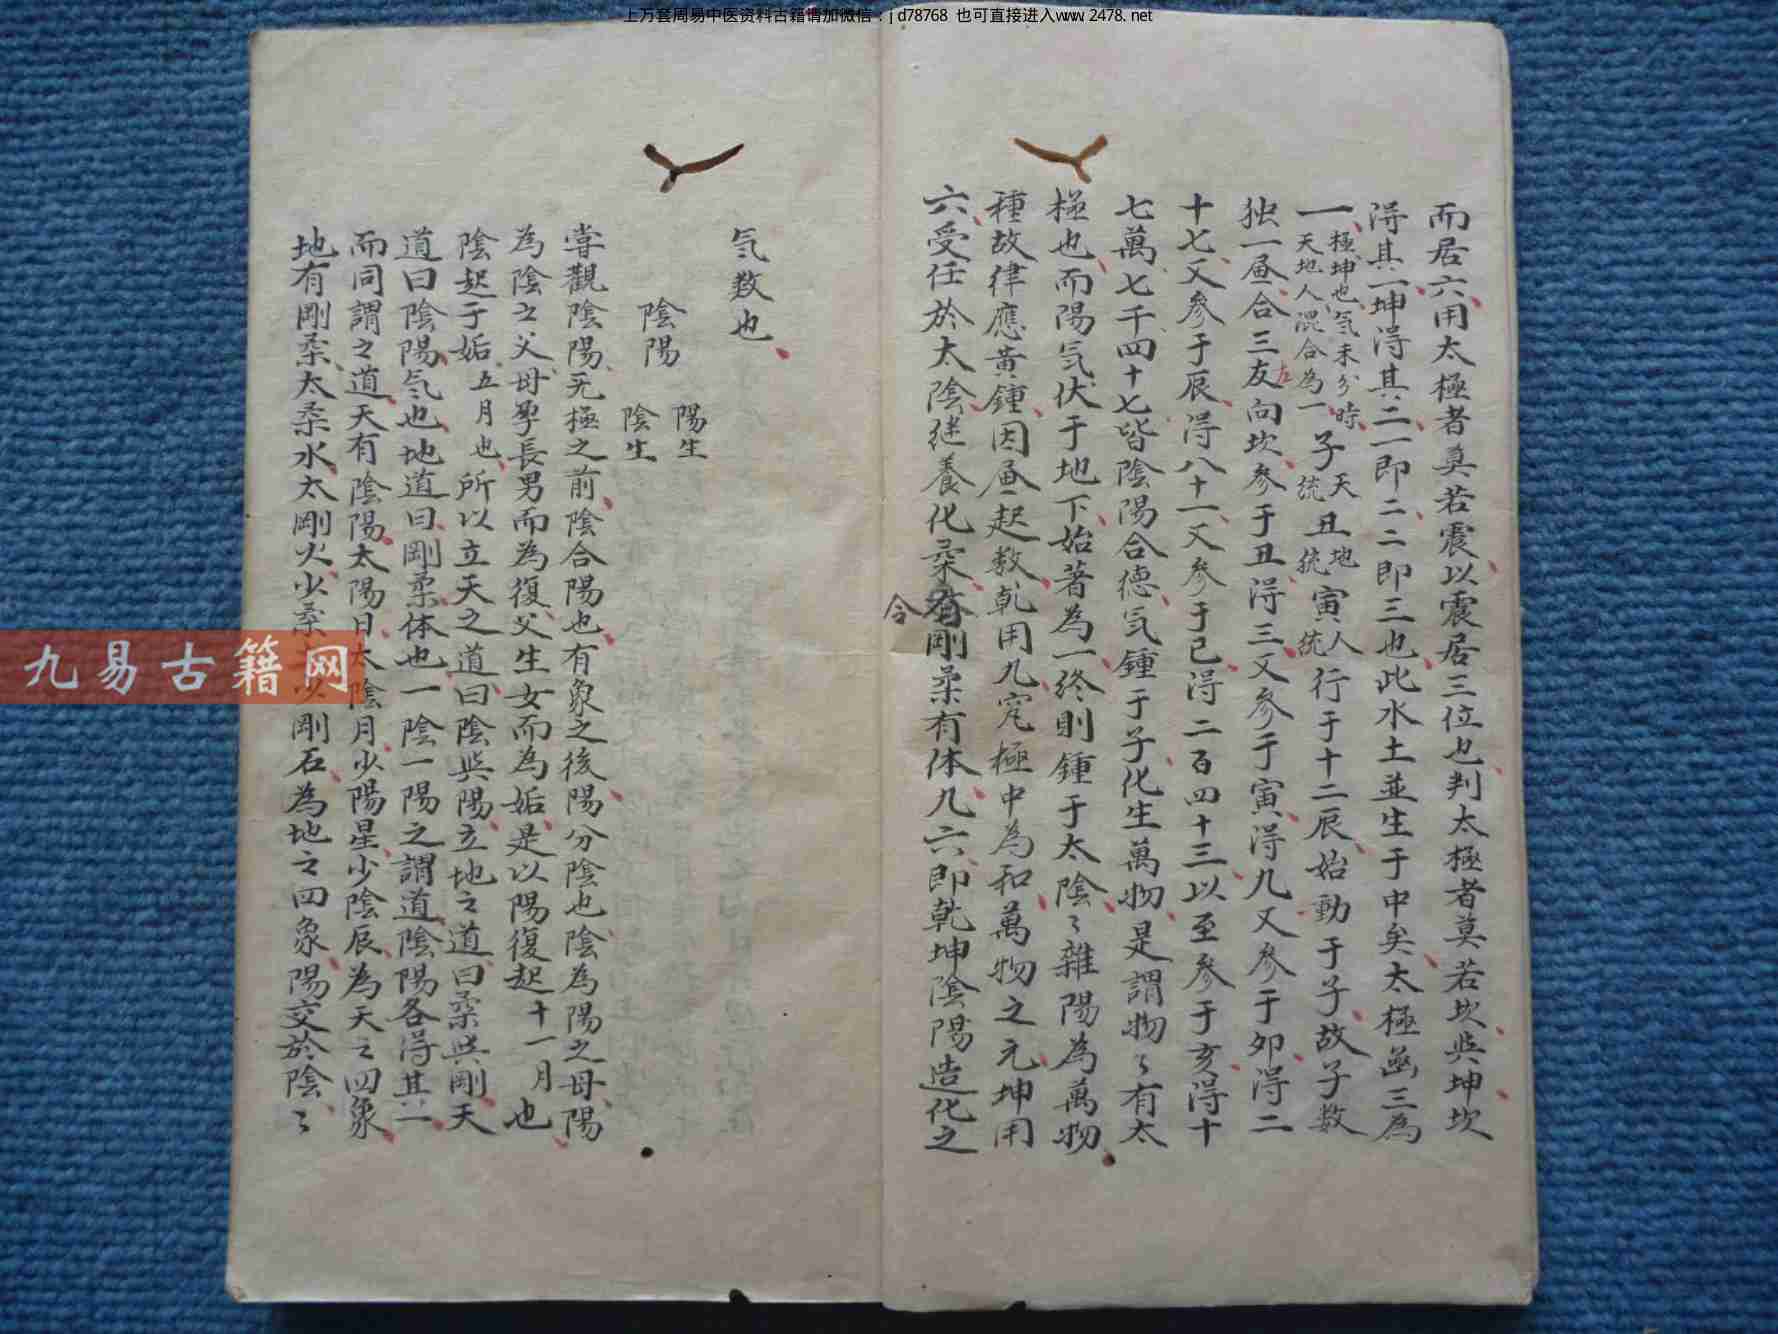 上万套周易中医资料古籍请加微信：jd78768 也可直接进入www.2478.net
而居六用太極者莫若震以震居三位也判太極者莫若坎與坤坎
得其一坤得其二一即二二即三也此水土並生于中矣太極函三為
一極坤也氣未分時天地人混合為一子天統丑地統寅人統行于十二辰始動于子故子数
独一届合三友向坎參于丑得三又參于寅得九又參于卯得二
十七又參于辰得八十一又參于巳得二百四十三以至參于亥得十
七萬七千四十七皆陰陽合德氣鍾于子化生萬物是謂物々有太
極也而陽氣伏于地下始著為一終則鍾于太陰々雜陽為萬物
種故律應黃鍾因届起数乾用九究極中為和萬物之元坤用
六受任於太陰継養化柔有剛柔有体九六即乾坤陰陽造化之
令
左
氣数也
陰陽
陽生
陰生
嘗觀陰陽无極之前陰合陽也有象之後陽分陰也陰為陽之母陽
為陰之父母孕長男而為復父生女而為姤是以陽復起十一月也
陰起于姤五月也所以立天之道曰陰與陽立地之道曰柔與剛天
道曰陰陽氣也地道曰剛柔体也一陰一陽之謂道陰陽各得其一
而同謂之道天有陰陽太陽日太陰月少陽星少陰辰為天之四象
地有剛柔太柔水太剛火少柔土少剛石為地之四象陽交於陰々
九易古籍网